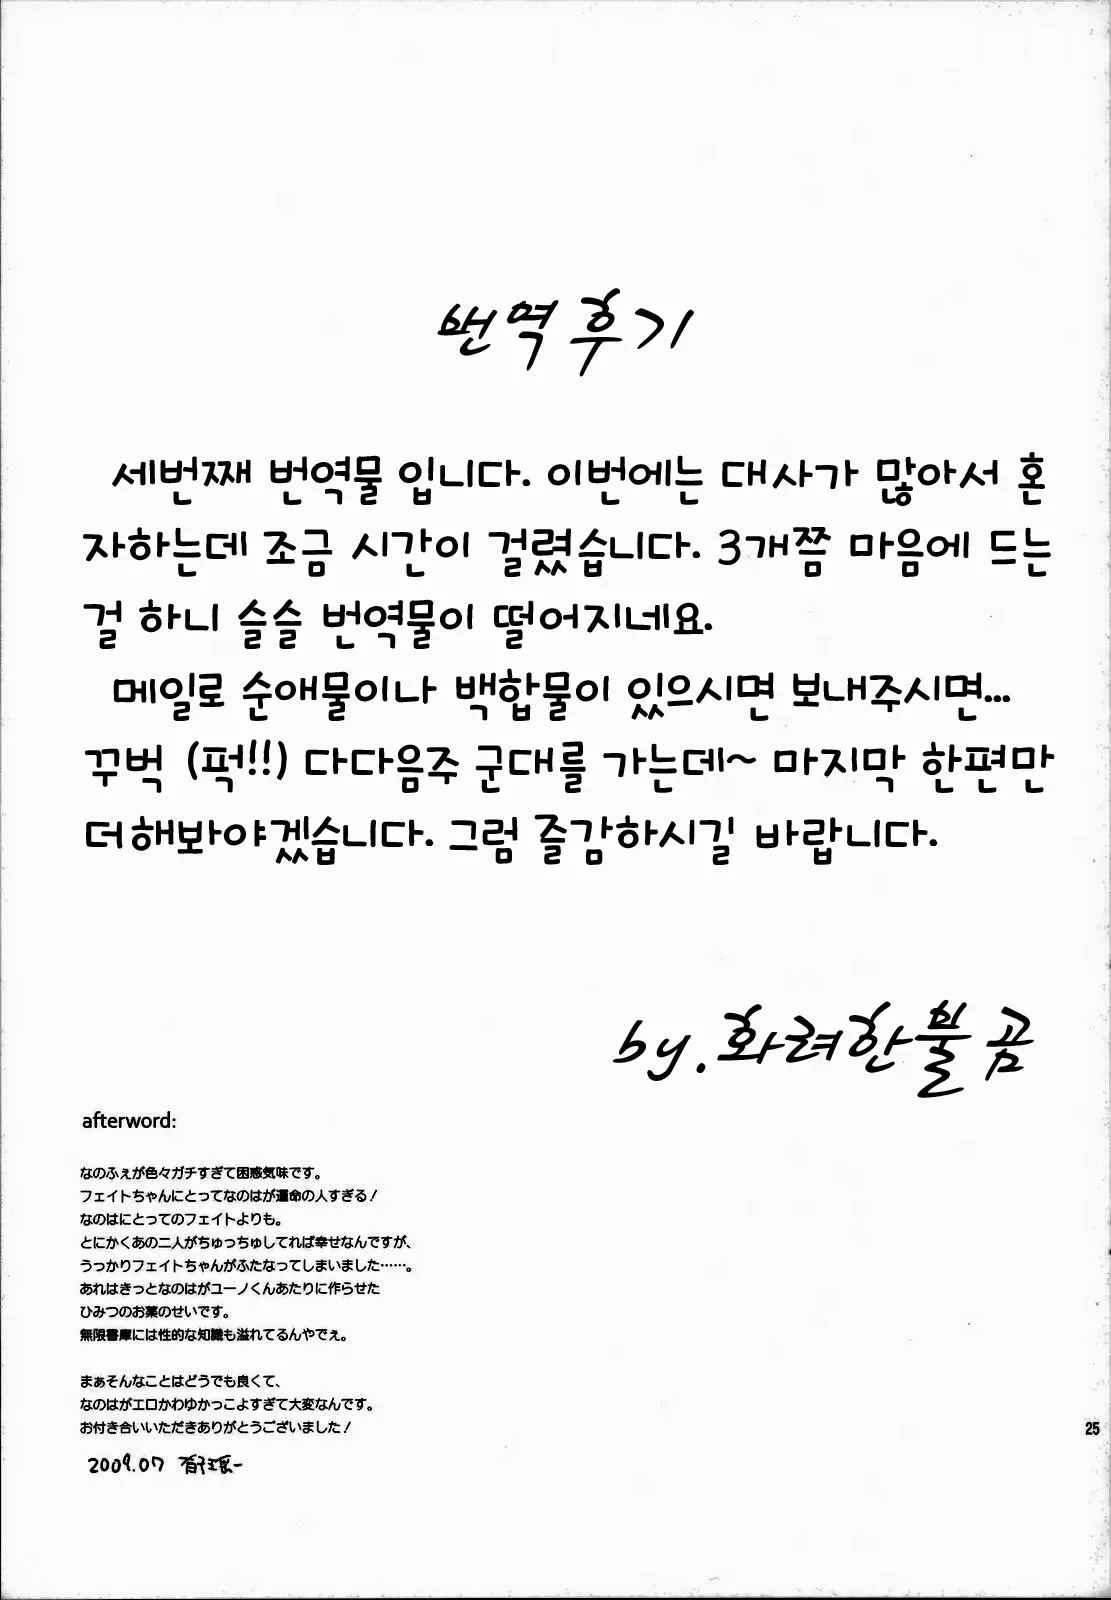 번역후기
세번째 번역물 입니다. 이번에는 대사가 많아서 혼
자하는데 조금 시간이 걸렸습니다. 3개쯤 마음에 드는
걸 하니 슬슬 번역물이 떨어지네요.
메일로 순애물이나 백합물이 있으시면 보내주시면...
꾸벅 (퍽!!) 다다음주 군대를 가는데~ 마지막 한편만
더해봐야겠습니다. 그럼 즐감하시길 바랍니다.
by.화려한불곰
afterword:
なのふぇが色々ガチすぎて困惑気味です。
フェイトちゃんにとってなのはが運命の人すぎる！
なのはにとってのフェイトよりも。
とにかくあの二人がちゅっちゅしてれば幸せなんですが、
うっかりフェイトちゃんがふたなってしまいました……。
あれはきっとなのはがユーノくんあたりに作らせた
ひみつのお薬のせいです。
無限書庫には性的な知識も溢れてるんやでぇ。
まぁそんなことはどうでも良くて、
なのはがエロかわゆかっこよすぎて大変なんです。
お付き合いいただきありがとうございました！
25
2009.07